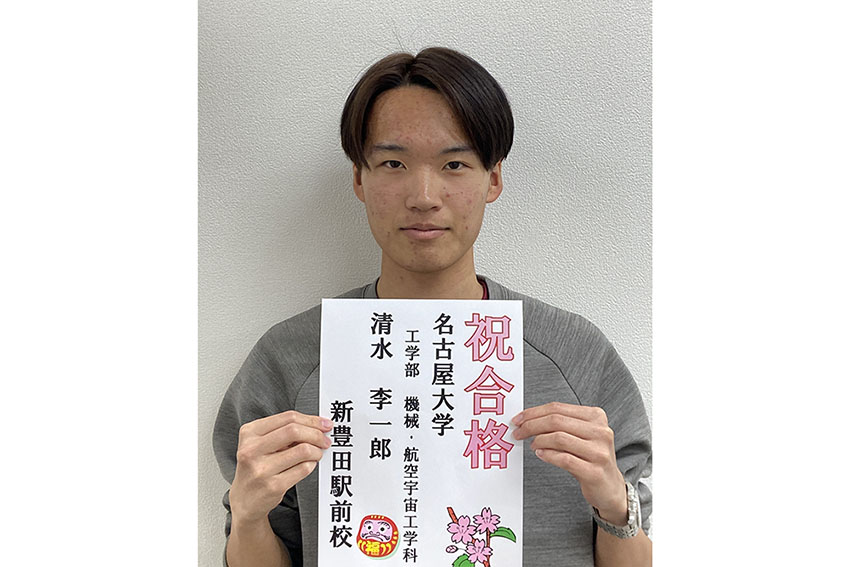 祝合格
名古屋大学
工学部 機械・航空宇宙工学科
清水 李一郎
新豊田駅前校
福